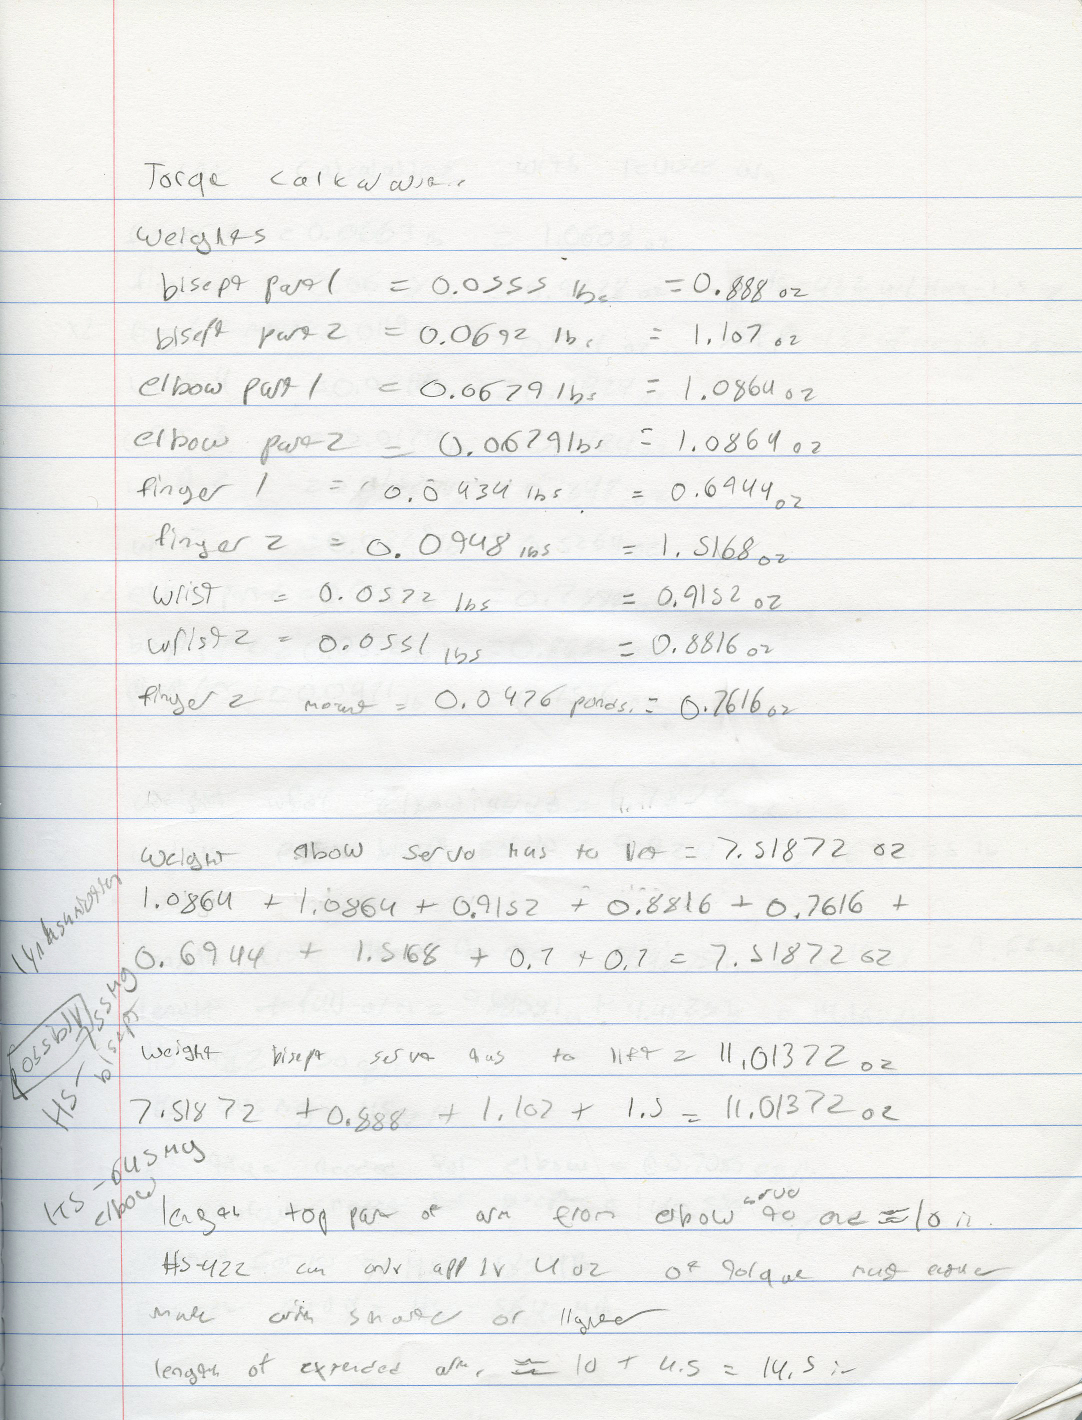 Torqe
weights
bisept part 1 = 0.0555 lbs = 0.888 oz
bisept part 2 = 0.0692 lbs = 1.107 oz
elbow part 1 = 0.0679 lbs = 1.0864 oz
elbow part 2 = 0.0679 lbs = 1.0864 oz
finger 1 = 0.0434 lbs = 0.6944 oz
finger 2 = 0.0948 lbs = 1.5168 oz
wrist = 0.0572 lbs = 0.9152 oz
wrist 2 = 0.0551 lbs = 0.8816 oz
finger 2 mount = 0.0476 ponds. = 0.7616 oz
weight elbow servo has to lift = 7.51872 oz
1.0864 + 1.0864 + 0.9152 + 0.8816 + 0.7616 +
0.6944 + 1.5168 + 0.7 + 0.7 = 7.51872 oz
weight bisept servo has to lift = 11.01372 oz
7.51872 + 0.888 + 1.107 + 1.5 = 11.01372 oz
length top part of arm from elbow servo to end ≈ 10 in.
HS-422 can only apply 4 oz of torque must either
make arm smaller or lighter
length of extended arm. ≈ 10 + 4.5 = 14.5 in
Possibly
HS-755MG
bisept
HS-645MG
elbow